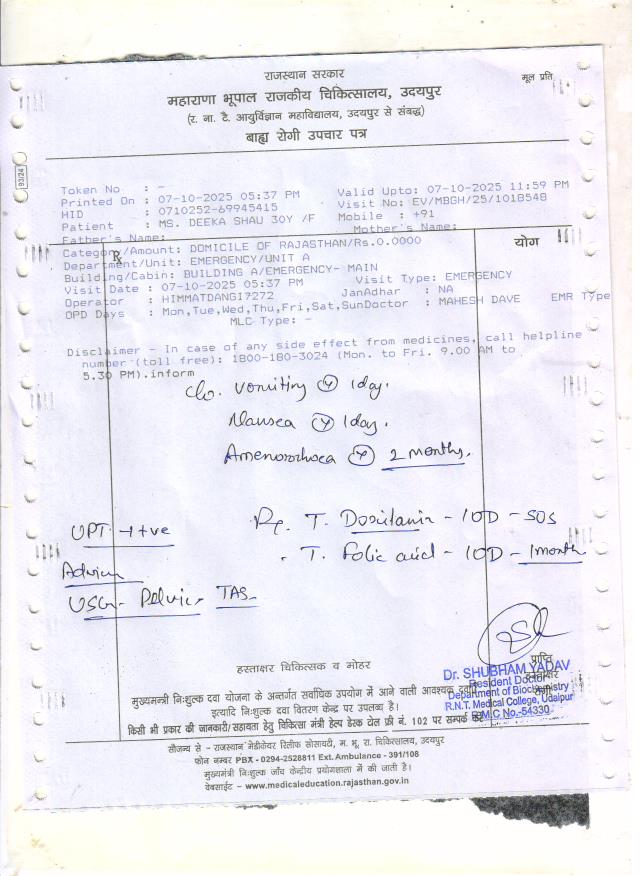 राजस्थान सरकार
मूल प्रति
महाराणा भूपाल राजकीय चिकित्सालय, उदयपुर
(र. ना. टै. आयुर्विज्ञान महाविद्यालय, उदयपुर से संबद्ध)
बाह्य रोगी उपचार पत्र
93/24
Token No : -
Printed On : 07-10-2025 05:37 PM Valid Upto: 07-10-2025 11:59 PM
HID : 0710252-69945415 Visit No: EV/MBGH/25/1018548
Patient : MS. DEEKA SHAU 30Y /F Mobile : +91
Father's Name: Mother's Name:
Category/Amount: DOMICILE OF RAJASTHAN/Rs.0.0000
Rx
योग
Department/Unit: EMERGENCY/UNIT A
Building/Cabin: BUILDING A/EMERGENCY- MAIN
Visit Date : 07-10-2025 05:37 PM Visit Type: EMERGENCY
Operator : HIMMATDANGI7272 JanAdhar : NA
OPD Days : Mon,Tue,Wed,Thu,Fri,Sat,SunDoctor : MAHESH DAVE EMR Type
MLC Type: -
Disclaimer - In case of any side effect from medicines, call helpline
number (toll free): 1800-180-3024 (Mon. to Fri. 9.00 AM to
5.30 PM).inform
c/o. vomiting 1day.
Nausea 1day.
Amenorrhoea 2 months.
UPT - +ve
Rx. T. Doxitanin - 1OD - SOS
T. Folic acid - 1OD - 1month
Advice
USG - Pelvic - TAS
हस्ताक्षर चिकित्सक व मोहर
प्राप्ति
Dr. SHUBHAM YADAV
Resident Doctor
Department of Biochemistry
R.N.T. Medical College, Udaipur
R.M.C No.-54330
मुख्यमन्त्री निःशुल्क दवा योजना के अन्तर्गत सर्वाधिक उपयोग में आने वाली आवश्यक
इत्यादि निःशुल्क दवा वितरण केन्द्र पर उपलब्ध है।
किसी भी प्रकार की जानकारी/सहायता हेतु चिकित्सा मंत्री हेल्प डेस्क टोल फ्री नं. 102 पर सम्पर्क करें
सौजन्य से - राजस्थान मेडीकेयर रिलीफ सोसायटी, म. भू. रा. चिकित्सालय, उदयपुर
फोन नम्बर PBX - 0294-2528811 Ext. Ambulance - 391/108
मुख्यमन्त्री निःशुल्क जाँच केन्द्रीय प्रयोगशाला में की जाती है।
वेबसाईट - www.medicaleducation.rajasthan.gov.in